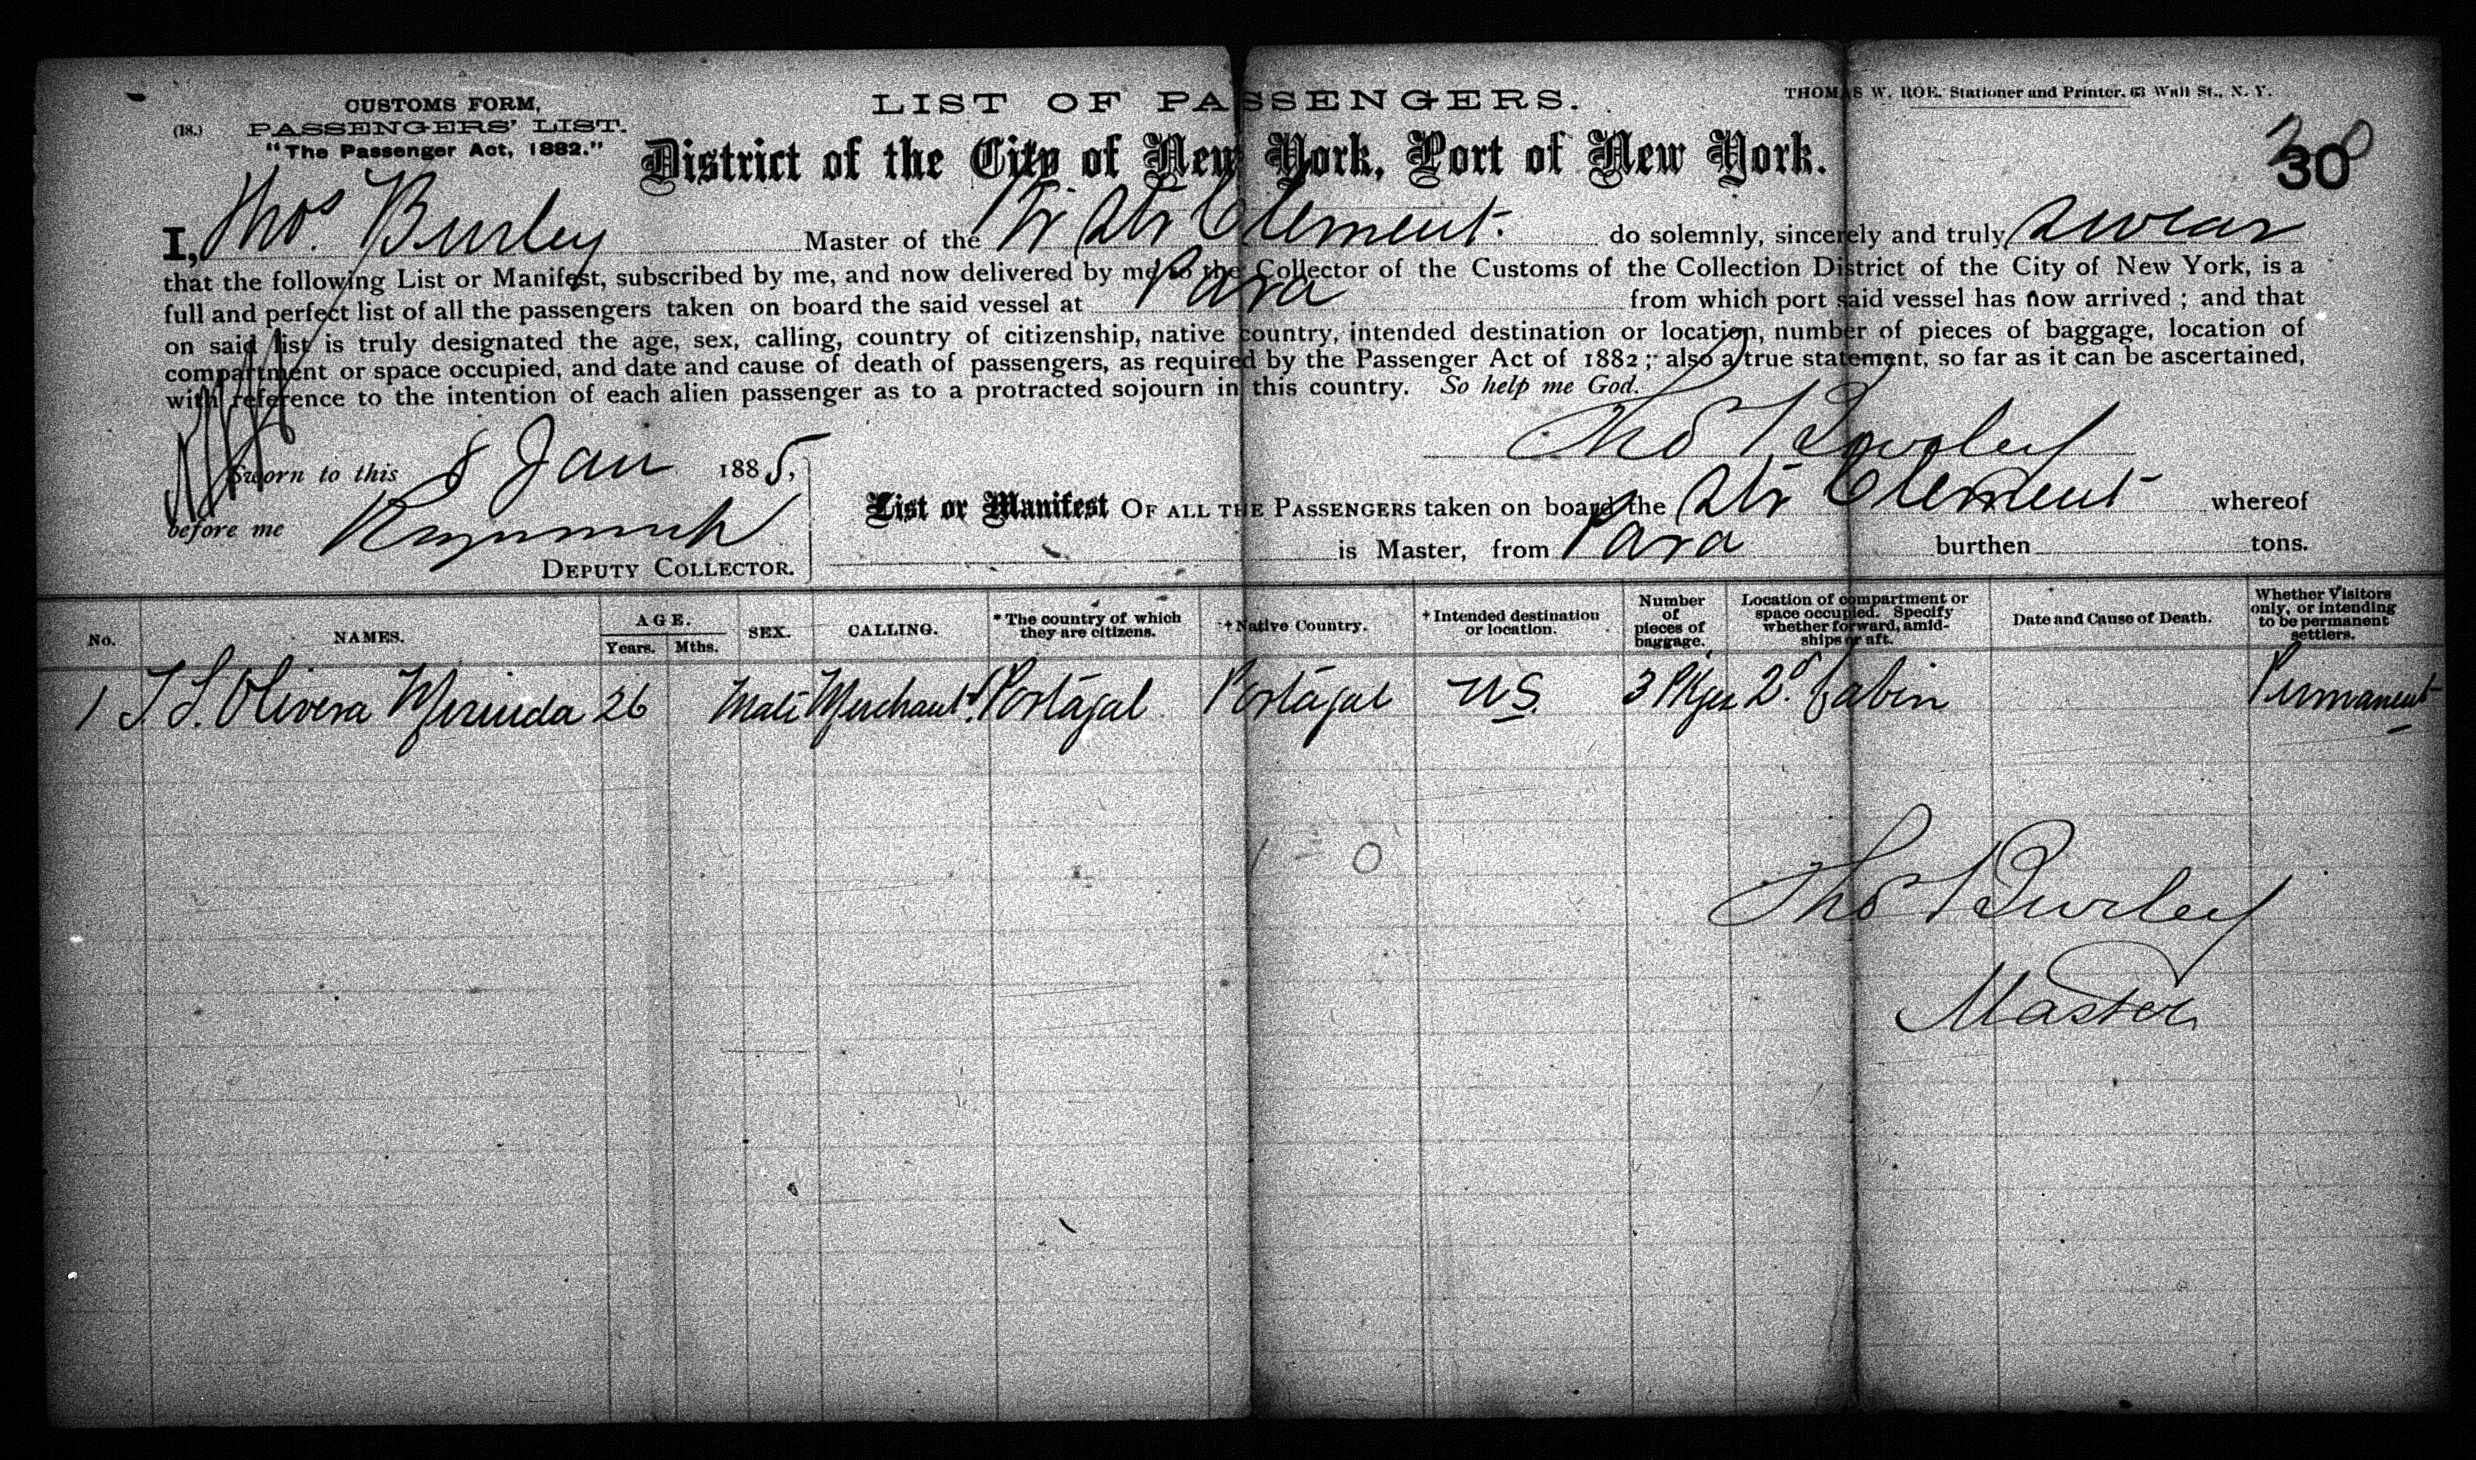 CUSTOMS FORM,
(18.) PASSENGERS' LIST.
"The Passenger Act, 1882."
LIST OF PASSENGERS.
THOMAS W. ROE. Stationer and Printer, 63 Wall St., N. Y.
District of the City of New York, Port of New York.
30
I, Thos. Burley Master of the Br Str Clement. do solemnly, sincerely and truly swear
that the following List or Manifest, subscribed by me, and now delivered by me to the Collector of the Customs of the Collection District of the City of New York, is a
full and perfect list of all the passengers taken on board the said vessel at Para from which port said vessel has now arrived; and that
on said list is truly designated the age, sex, calling, country of citizenship, native country, intended destination or location, number of pieces of baggage, location of
compartment or space occupied, and date and cause of death of passengers, as required by the Passenger Act of 1882; also a true statement, so far as it can be ascertained,
with reference to the intention of each alien passenger as to a protracted sojourn in this country. So help me God.
Thos Burley
Sworn to this 8 Jan 1885,
before me
DEPUTY COLLECTOR.
List or Manifest OF ALL THE PASSENGERS taken on board the Str Clement whereof
is Master, from Para burthen tons.
No. NAMES. AGE. Years. Mths. SEX. CALLING. * The country of which they are citizens. † Native Country. † Intended destination or location. Number of pieces of baggage. Location of compartment or space occupied. Specify whether forward, amidships or aft. Date and Cause of Death. Whether Visitors only, or intending to be permanent settlers.
1 J. S. Olivera 26 Male Merchant Portagal Portagal U S. 3 Pkges 2d Cabin Permanent
1 - 0
Thos Burley
Master